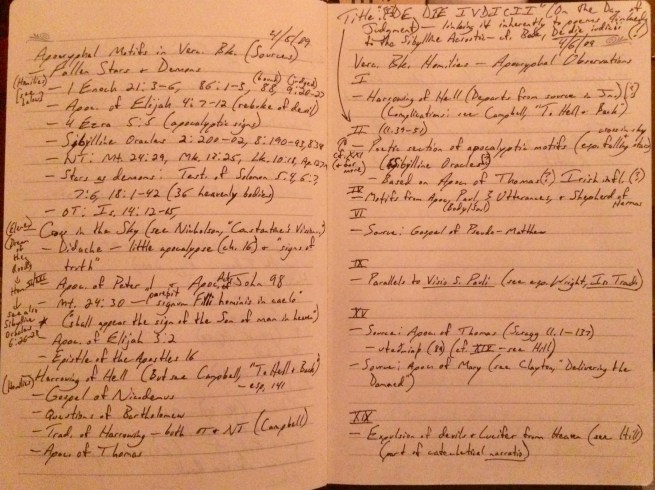 4/6/09
Apocryphal Motifs in Verc. Bk. (Sources)
Fallen Stars & Demons
(Homilies)
- 1 Enoch 21:3-6, 86:1-3, 88, 9:20-27
(bound) (judged)
- Apoc. of Elijah 4:7-12 (rebuke of devil)
- 4 Ezra 5:5 (apocalyptic signs)
- Sibylline Oracles 2:200-02, 8:190-93,
- NT: Mt. 24:29, Mk. 13:25, Lk. 10:18, Ap.
- Stars as demons: Test. of Solomon
18:1-42 (36 heavenly bodies)
- OT: Is. 14:12-15,
- Cross in the Sky (see Nicholson, "Constantine's Vision")
- Didache - little apocalypse (ch. 16) & "signs of
truth"
- Apoc of Peter 1 & Apoc. of John 98
- Mt. 24:30 - parebit signum Filii hominis in caelo"
("shall appear the sign of the Son of man in heaven")
see also
Sibylline
Oracles
- Apoc. of Elijah 3:2
- Epistle of the Apostles 16
(Homilies) Harrowing of Hell (But see Campbell, "To Hell & Back,"
- esp. 141
- Gospel of Nicodemus
- Questions of Bartholomew
- Trad. of Harrowing - both OT & NT (Campbell)
- Apoc. of Thomas
Title: "DE DIE IVDICII" (On the Day of
Judgment) - linking it inherently to poems
to the Sibylline Acrostic - cf. Bede, De die iudicii (?)
4/6/09
Verc. Bk. Homilies - Apocryphal Observations
I
- Harrowing of Hell (Departs from source in
(Complications: see Campbell, "To Hell & Back")
II (ll. 39-51)
cf. XXI
- Poetic section of apocalyptic motifs (esp. falling stars)
cross in sky
(Sibylline Oracles)
- Based on Apoc. of Thomas (?) Irish infl. (?)
IV
- Motifs from Apoc. Paul, 3 Utterances, & Shepherd of Hermas
(Body/Soul)
VI
- Source: Gospel of Pseudo-Matthew
IX
- Parallels to Visio S. Pauli (see esp. Wright, Ir. Trad.)
XV
- Source: Apoc. of Thomas (Scragg ll. 1-137)
(cf. XIX - see Hill)
- Source: Apoc. of Mary (see Clayton, "Delivering the
Damned")
XIX
- Expulsion of devils & Lucifer from Heaven (see Hill)
(part of catechetical narratio)